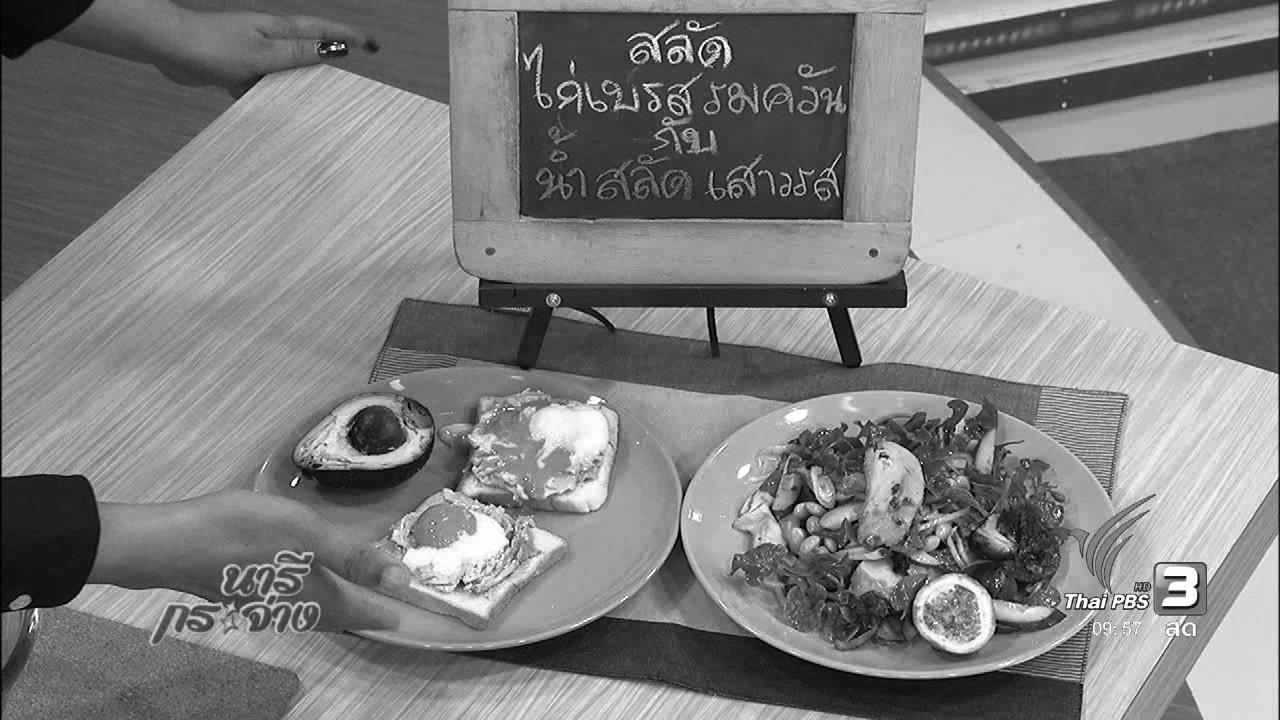 สลัด
ไก่เบรสรมควัน
กับ
น้ำสลัดเสาวรส
นารี
กระจ่าง
HD
Thai PBS 3
09:57 สด